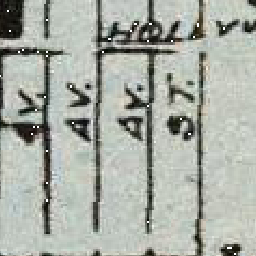 HOLLYW
AV.
AV.
AV.
ST.